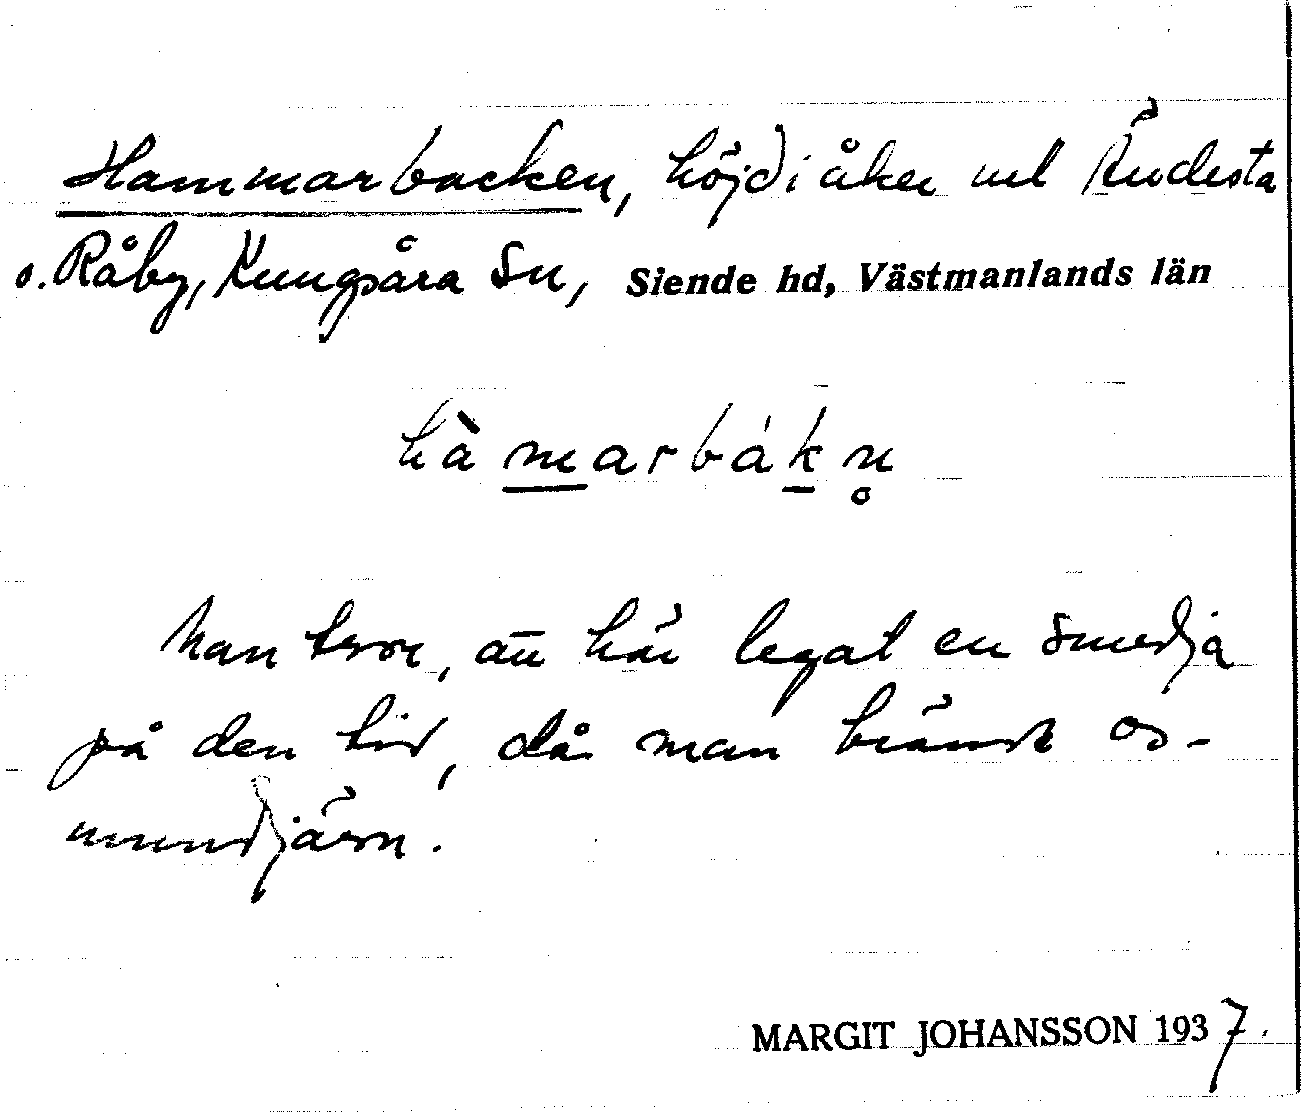 Hammarbacken, höjd i åker ml Ändesta
o. Råby, Kungsåra Sn, Siende hd, Västmanlands län
hàmarbákn̥
Man tror, att här legat en smedja
på den tid, då man brände os-
mundjärn.
MARGIT JOHANSSON 1937.